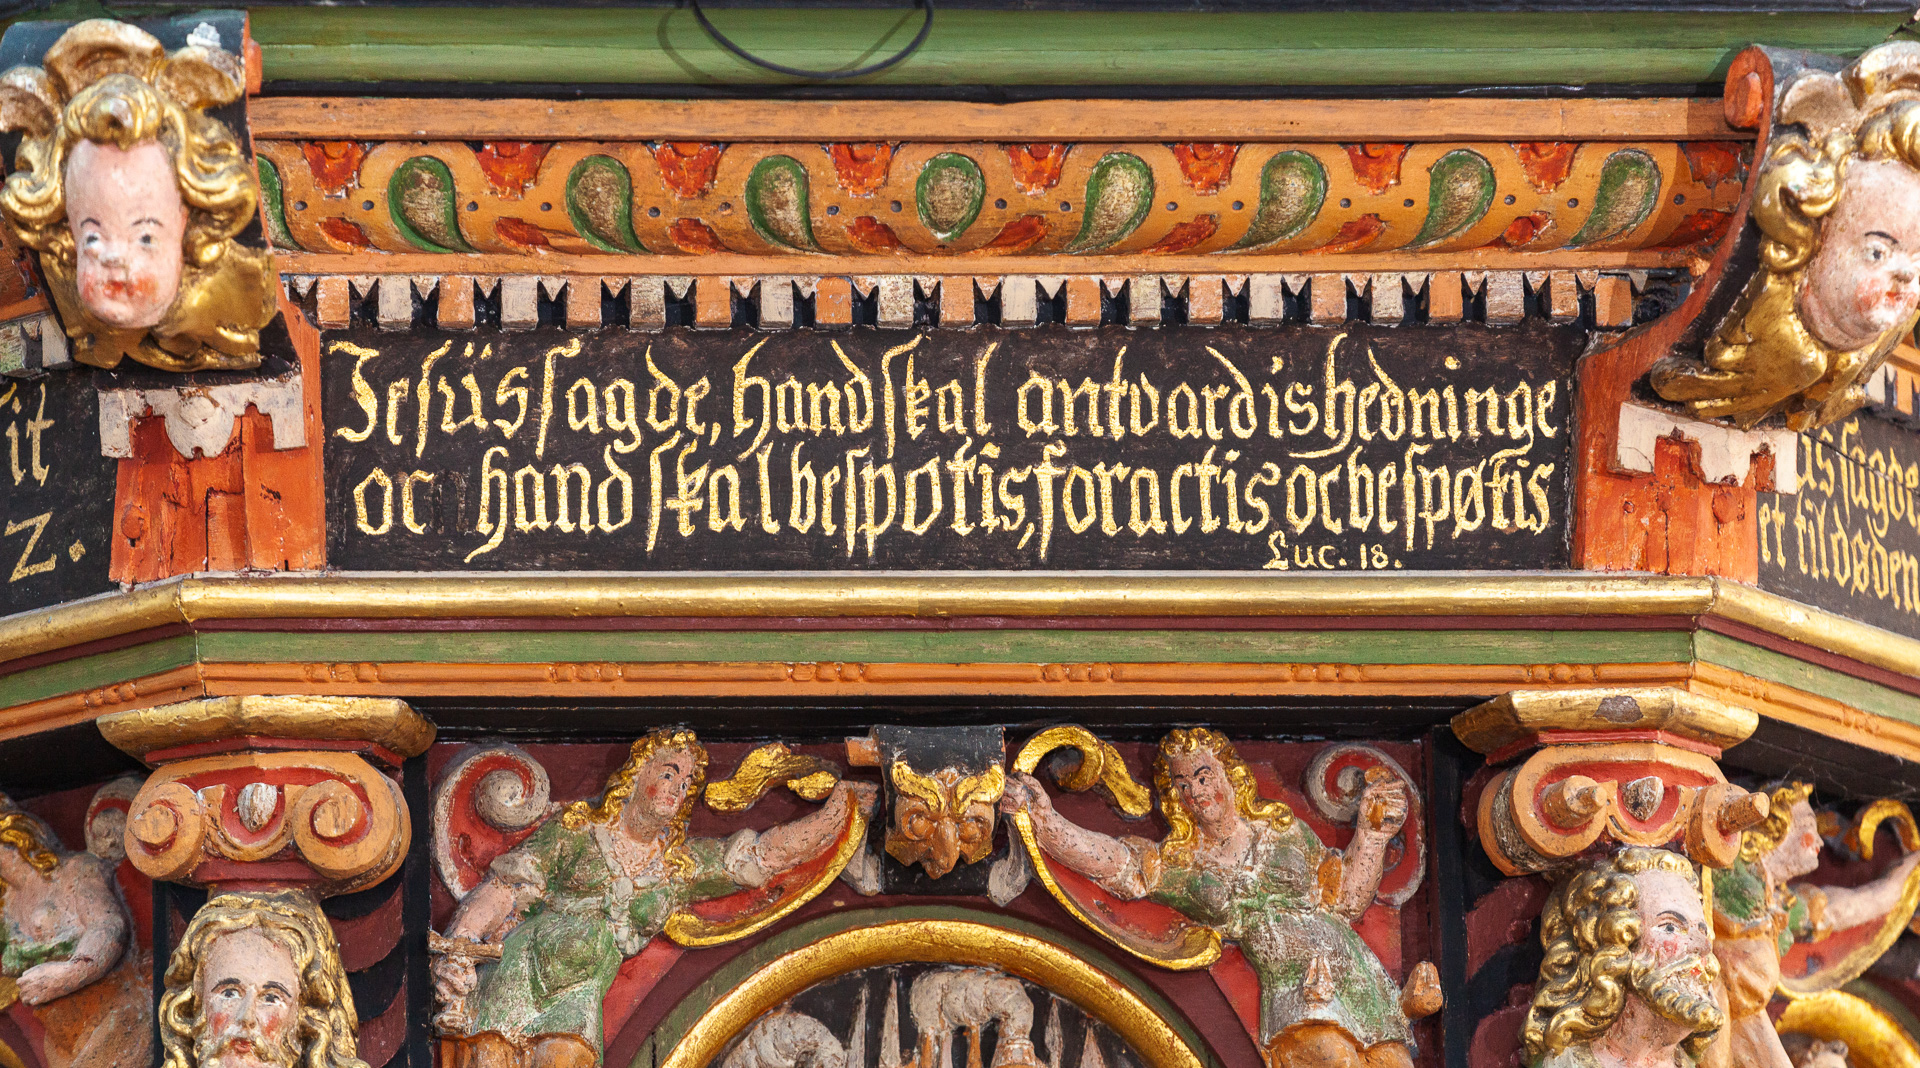 it
Z.
Jesüs sagde, hand skal antvardis hedninge
oc hand skal bespotis, foractis oc bespøtis
Luc. 18.
us sagde
et til døden